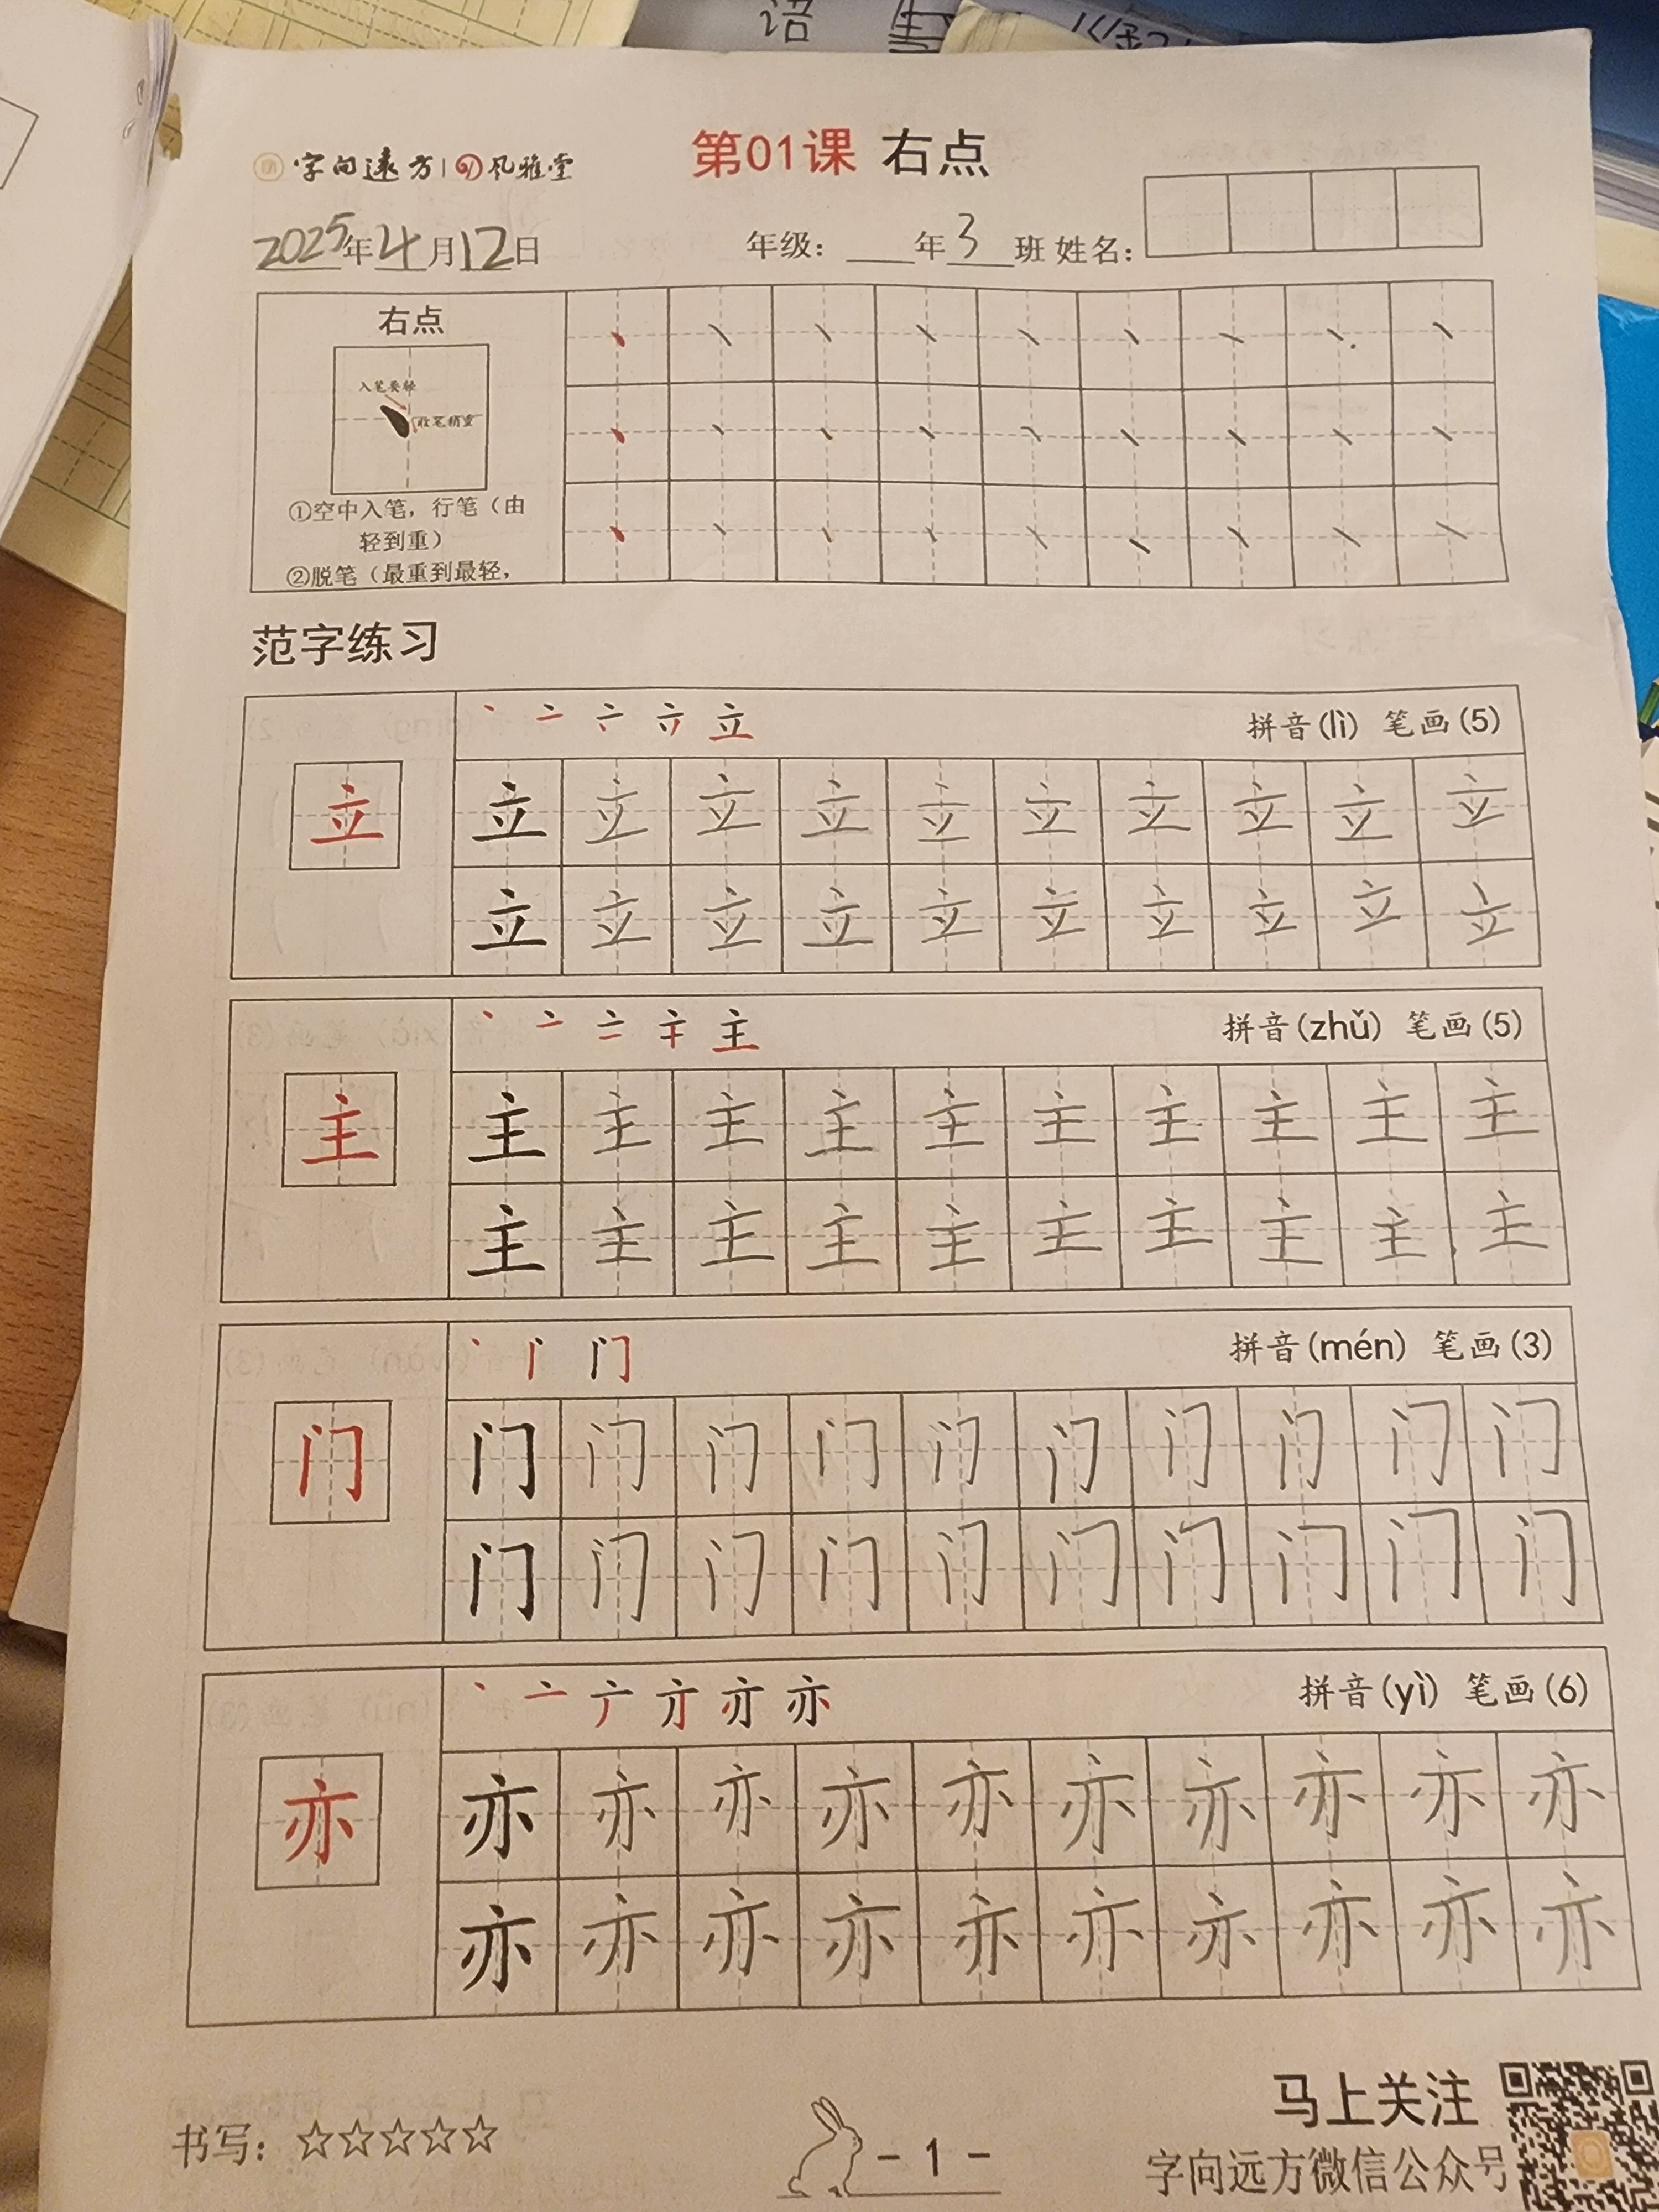 字向远方|风雅堂
第01课 右点
2025年4月12日 年级: ___年3班 姓名:
右点
入笔要轻
收笔稍重
①空中入笔，行笔（由
轻到重）
②脱笔（最重到最轻，
范字练习
拼音(lì) 笔画(5)
立 立 立 立 立 立 立 立 立 立 立
立 立 立 立 立 立 立 立 立 立
拼音(zhǔ) 笔画(5)
主 主 主 主 主 主 主 主 主 主 主
主 主 主 主 主 主 主 主 主 主
拼音(mén) 笔画(3)
门 门 门 门 门 门 门 门 门 门 门
门 门 门 门 门 门 门 门 门 门
拼音(yì) 笔画(6)
亦 亦 亦 亦 亦 亦 亦 亦 亦 亦 亦
亦 亦 亦 亦 亦 亦 亦 亦 亦 亦
书写: ☆☆☆☆☆
- 1 -
马上关注
字向远方微信公众号